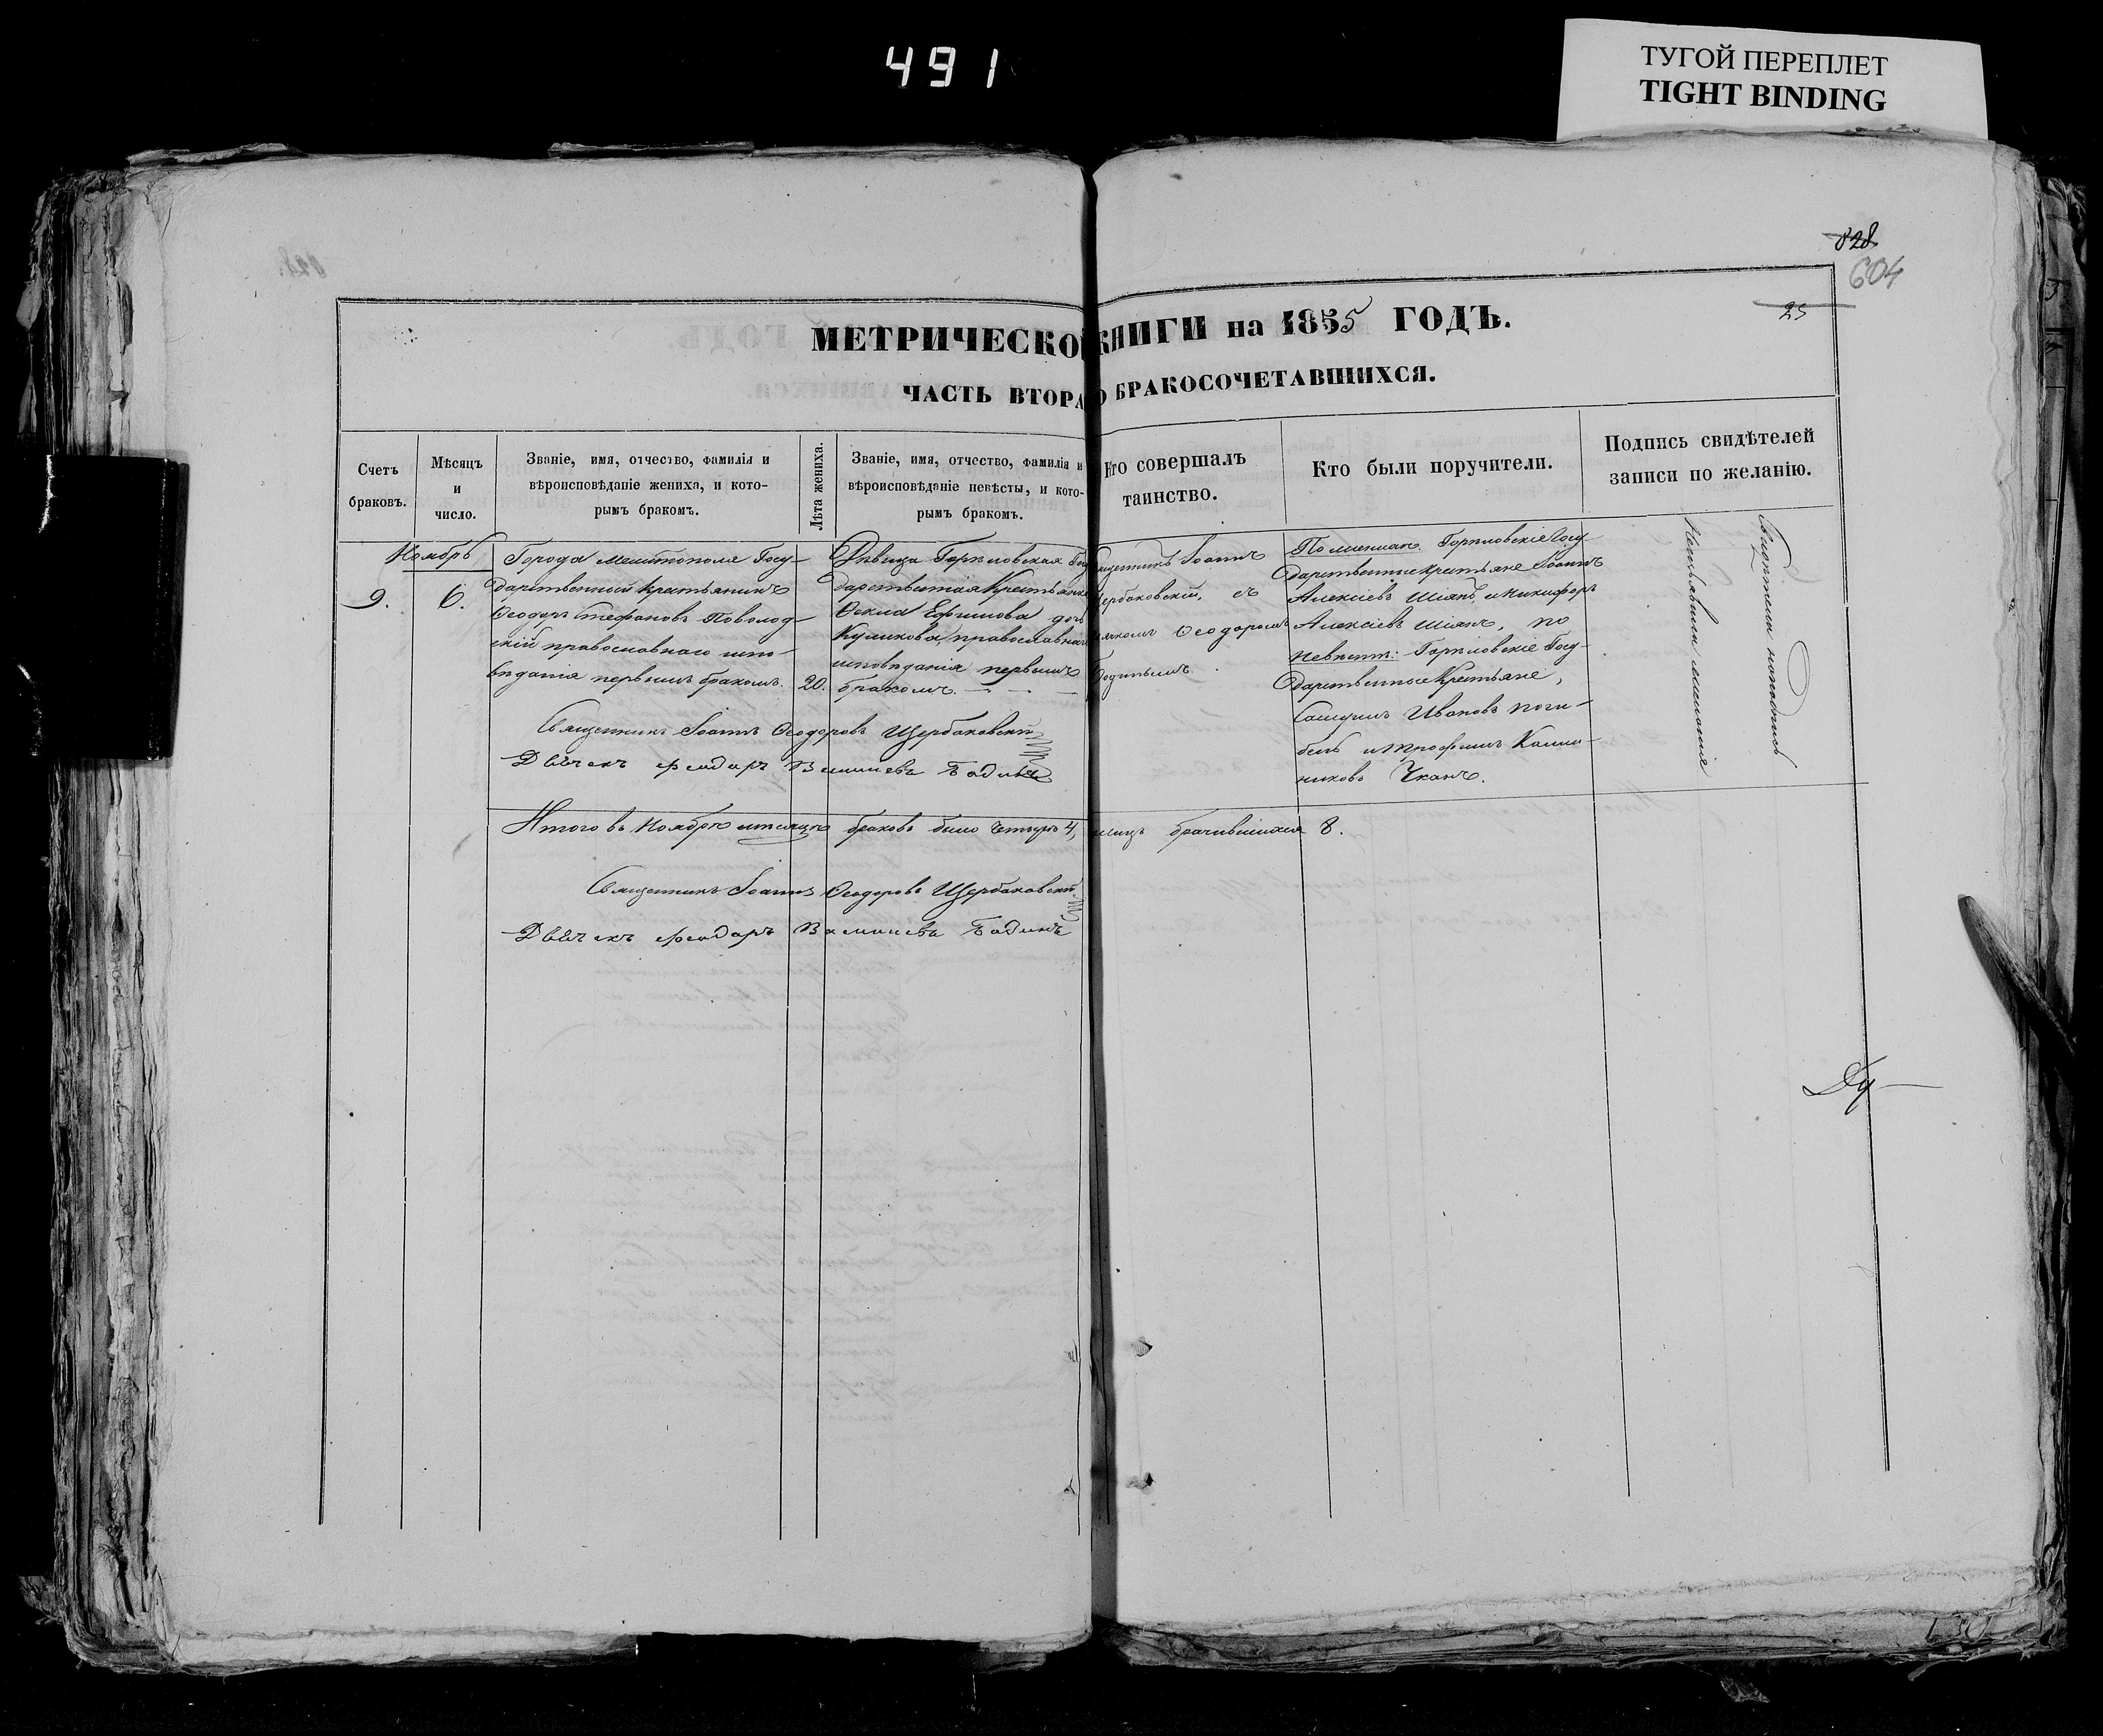 491
ТУГОЙ ПЕРЕПЛЕТ
TIGHT BINDING
828
604
25
МЕТРИЧЕСКО КНИГИ на 1855 ГОДЪ.
ЧАСТЬ ВТОРА О БРАКОСОЧЕТАВШИХСЯ.
Счетъ
браковъ.
Мѣсяцъ
и
число.
Званіе, имя, отчество, фамилія и
вѣроисповѣданіе жениха, и кото-
рымъ бракомъ.
Лѣта жениха.
Званіе, имя, отчество, фамилія и
вѣроисповѣданіе невѣсты, и кото-
рымъ бракомъ.
Кто совершалъ
таинство.
Кто были поручители.
Подпись свидѣтелей
записи по желанію.
Ноябрь
9.
6.
Города Мелитополя Госу-
дарственный крестьянинъ
Ѳеодоръ Стефановъ Поволод-
скій православнаго испо-
вѣданія первымъ бракомъ.
20.
Дѣвица Горѣловская Го
дарственная Крестьянка
Ѳекла Ефимова дочь
Куликова, православнаго
исповѣданія первымъ
бракомъ.
Священникъ Іоаннъ
Щербаковскій, съ
дьячкомъ Ѳеодоромъ
Бодинымъ.
По женихѣ: Горѣловскіе Госу-
дарственные крестьяне Іоаннъ
Алексіевъ Шіянъ, и Никифоръ
Алексіевъ Шіянъ, по
невѣстѣ: Горѣловскіе Госу-
дарственные Крестьяне,
Самуилъ Ивановъ Поги-
бель и Трофимъ Калин-
никовъ Чканъ.
Свидѣтели наподпись
Неизъявили желанія
Священникъ Іоаннъ Ѳеодоровъ Щербаковскій
Дьячекъ Феодоръ Бодинъ
Итого въ Ноябрѣ мѣсяцѣ браковъ было четыре 4, лицъ брачившихся 8.
Священникъ Іоаннъ Ѳеодоровъ Щербаковскій
Дьячекъ Феодоръ Бодинъ